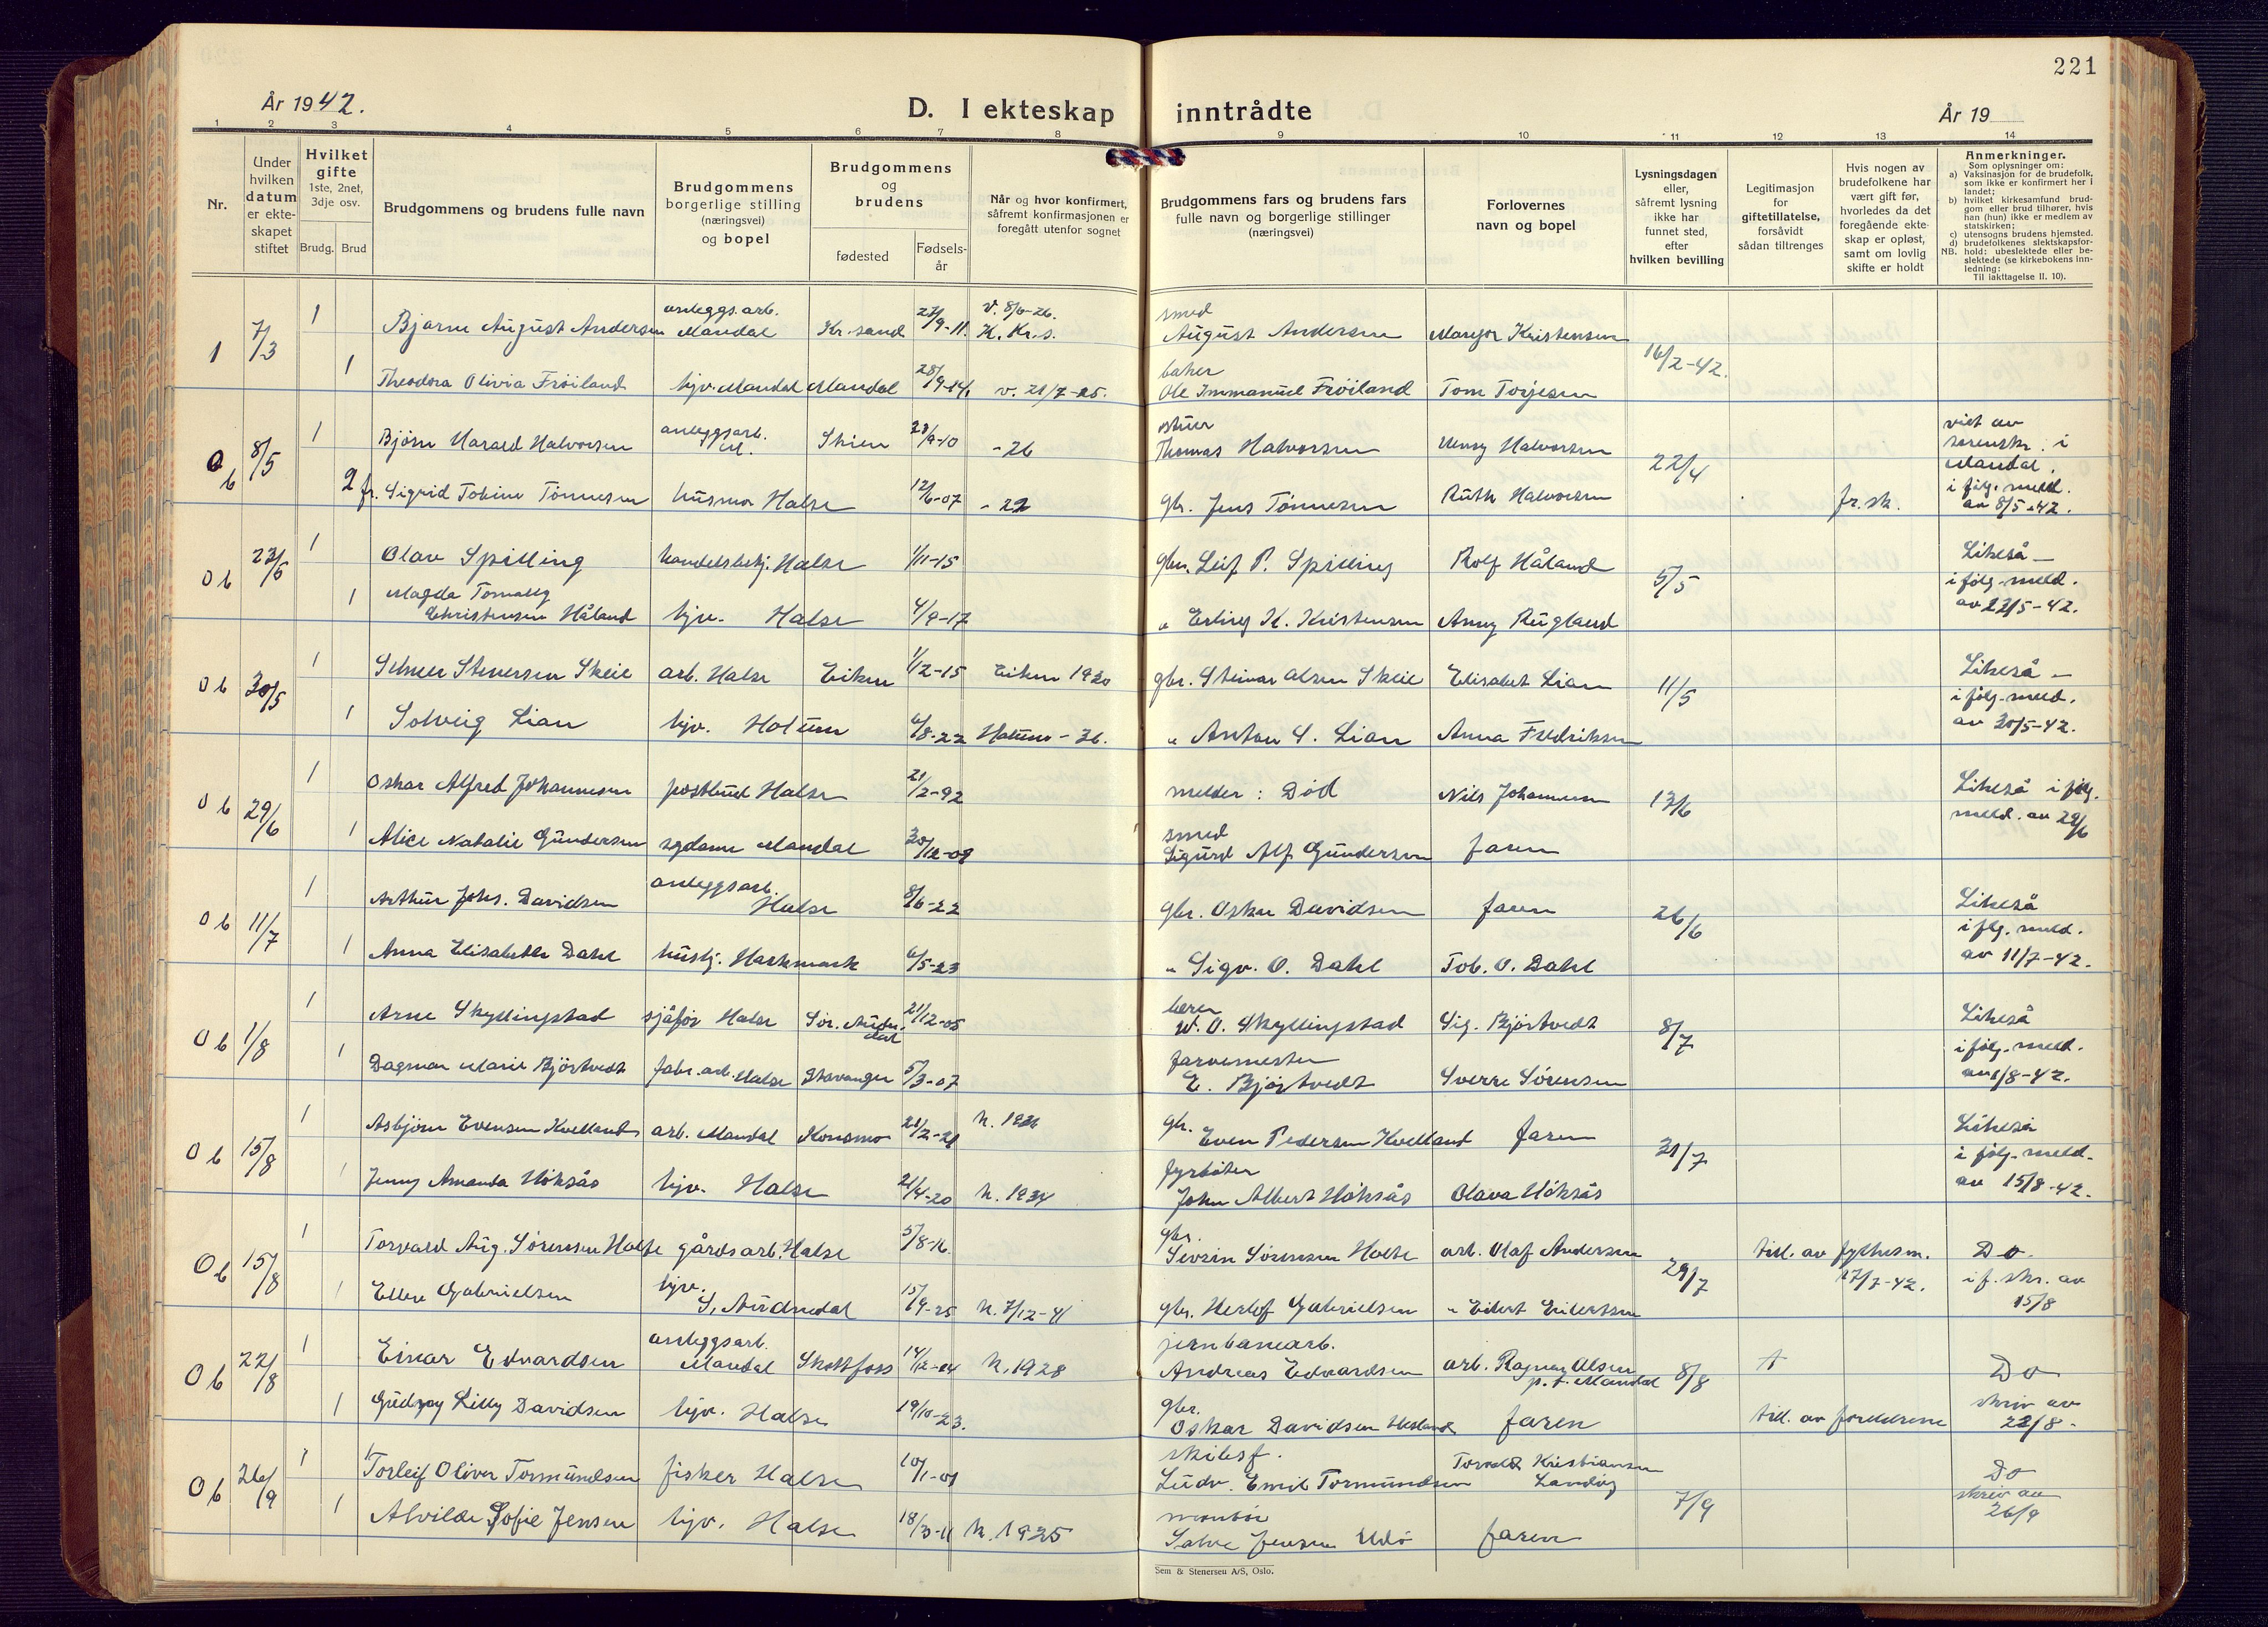 221
År 1942.
D. I ekteskap inntrådte
År 19
1 2 3 4 5 6 7 8 9 10 11 12 13 14
Nr.
Under hvilken datum er ekteskapet stiftet
Hvilket gifte 1ste, 2net, 3dje osv.
Brudg. Brud
Brudgommens og brudens fulle navn
Brudgommens borgerlige stilling (næringsvei) og bopel
Brudgommens og brudens
fødested
Fødselsår
Når og hvor konfirmert, såfremt konfirmasjonen er foregått utenfor sognet
Brudgommens fars og brudens fars fulle navn og borgerlige stillinger (næringsvei)
Forlovernes navn og bopel
Lysningsdagen eller, såfremt lysning ikke har funnet sted, efter hvilken bevilling
Legitimasjon for giftetillatelse, forsåvidt sådan tiltrenges
Hvis nogen av brudefolkene har vært gift før, hvorledes da det foregående ekteskap er opløst, samt om lovlig skifte er holdt
Anmerkninger.
Som oplysninger om:
a) Vaksinasjon for de brudefolk, som ikke er konfirmert her i landet;
b) hvilket kirkesamfund brudgom eller brud tilhører, hvis han (hun) ikke er medlem av statskirken;
c) utensogns brudens hjemsted.
d) brudefolkenes slektskapsforhold: ubeslektede eller beslektede (se kirkebokens innledning:
NB. Til iakttagelse II. 10).
1 7/3 1 Bjarne August Andersen anleggs.arb. Mandal Kr.sand 27/9-11. v. 8/6-26. K. Kr.s. smed August Andersen Kristensen 16/2-42.
1 Theodora Olivia Frøiland hjv. Mandal Mandal 28/9-14 v. 21/7-25. baker Ole Immanuel Frøiland Tom Torjesen
0 b 8/5 1 Bjørn Harald Halvorsen anleggsarb. M. Skien 28/9-10 -26 Thomas Halvorsen Henry Halvorsen 22/4 viet av sorenskr. i Mandal.
2 fr. Sigrid Tobine Tønnesen husmor Halse 12/6-07 -22 gbr. Jens Tønnesen Ruth Halvorsen fr.sk. i følg. meld. av 8/5-42.
0 b 23/5 1 Olav Spilling handelsbetj. Halse 1/11-15 gbr. Leif P. Spilling Rolf Håland 5/5 Likeså –
1 Magda Christensen Håland hjv. Halse 4/9-17 " Erling K. Kristensen Anny Rugland i følg. meld. av 22/5-42.
0 b 30/5 1 Stenersen Skeie arb. Halse Eiken 1/12-15 Eiken 1930 gbr. Steinar Olsen Skeie Elisabet Lian 11/5 Likeså –
1 Solveig Lian hjv. Holum 6/8-22 Holum -36. " Anton S. Lian Anna Fredriksen i følg. meld. av 30/5-42.
0 b 29/6 1 Oskar Alfred Johannesen postbud Halse 21/2-92 melder: Død Nils Johannesen 13/6 Likeså i følg. meld. av 29/6
1 Alice Natalie Gundersen sydame Mandal 30/12-08 smed Sigurd Alf Gundersen faren
0 b 11/7 1 Arthur Johs. Davidsen anleggsarb. Halse 8/6-22 gbr. Oskar Davidsen faren 26/6 Likeså
1 Anna Elisabeth Dahl hushj. Harkmark 6/5-23 " Sigv. O. Dahl Tob. O. Dahl i flg. meld. av 11/7-42.
0 b 1/8 1 Arne Skyllingstad sjåfør Halse Sør. Audnedal 21/12-05 lærer W. O. Skyllingstad Sig. Bjørtvedt 8/7 Likeså
1 Dagmar Marie Bjørtvedt fabr.arb. Halse Stavanger 5/3-07 farvemester E. Bjørtvedt Sverre Sørensen i følg. meld. av 1/8-42.
0 b 15/8 1 Asbjørn Evensen Kvelland arb. Mandal Konsmo 21/2-21 gbr. Even Pedersen Kvelland faren 31/7 Likeså
1 Jenny Amanda Höksås hjv. Halse 21/4-20 k. 1934 fyrbøter John Albert Höksås Olava Höksås i følg. meld. av 15/8-42.
0 b 15/8 1 Torvald Aug. Sørensen Holte gårdsarb. Halse 5/8-16 gbr. Severin Sørensen Holte arb. Olaf Andersen 29/7 till. av fylkesm. 17/7-42. Do. i f. skr. av 15/8
1 Ellen Gabrielsen hjv. S. Audnedal 15/9-25 k. 7/12-41 gbr. Herlof Gabrielsen " Eilert Eilertsen
0 b 22/8 1 Einar Edvardsen anleggsarb. Mandal Skotfoss 14/12-14 k. 1928 jernbanearb. Andreas Edvardsen arb. Ragnar Olsen p.t. Mandal 8/8 Do
1 Gudny Lilly Davidsen hjv. Halse 19/10-23. gbr. Oskar Davidsen faren till. av foreldrene skriv av 22/8-
0 b 26/9 1 Torleif Oliver Tormundsen fisker Halse 10/1-09 skibsf. Ludv. Emil Tormundsen Torvald Kristiansen Landøy 7/9 Do
1 Alvilde Sofie Jensen hjv. Halse 18/3-11 k. 1925 montør Salve Jensen Udø faren skriv av 26/9
Sem & Stenersen A/S, Oslo.